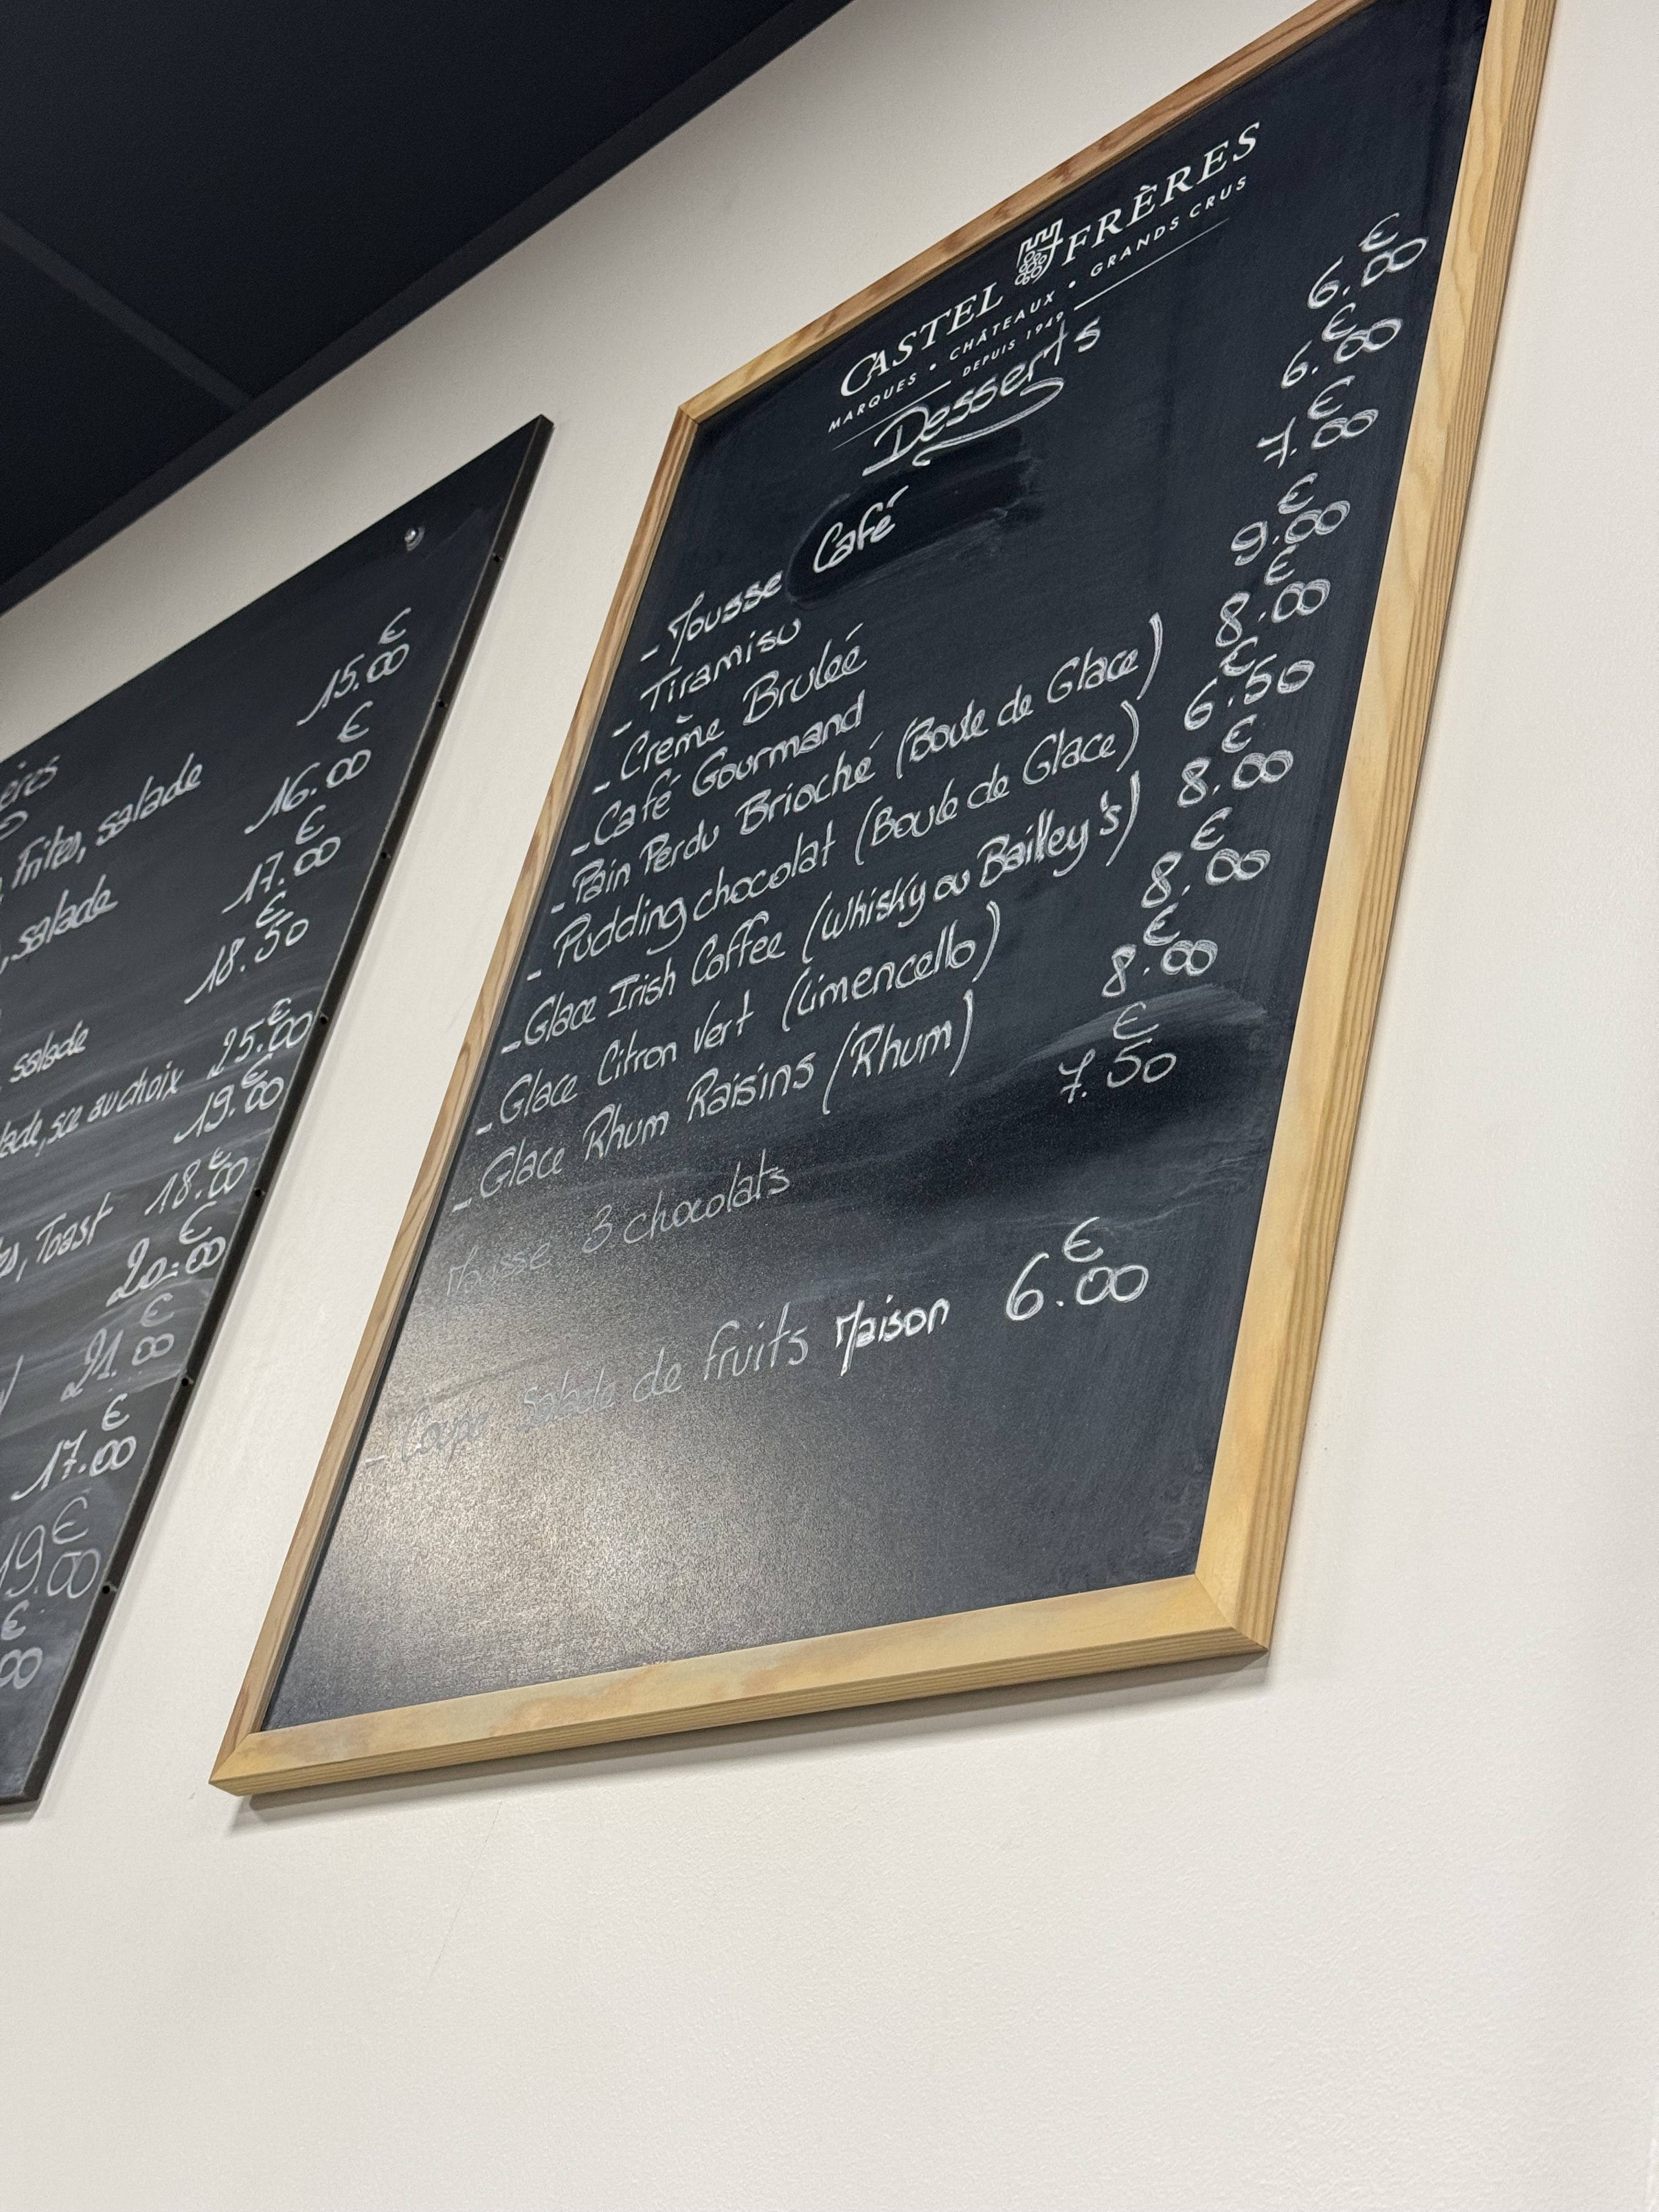 ères
Frites, salade 15.00€
, salade 16.00€
17.00€
salade 18.50€
lade, sce au choix 25.00€
19.00€
es, Toast 18.00€
20.00€
21.00€
17.00€
19.00€
00€
CASTEL FRÈRES
MARQUES • CHÂTEAUX • GRANDS CRUS
DEPUIS 1949
Desserts
- Mousse Café 6.00€
- Tiramisu 6.00€
- Crème Bruleé 7.00€
- Café Gourmand 9.00€
- Pain Perdu Brioché (Boule de Glace) 8.00€
- Pudding chocolat (Boule de Glace) 6.50€
- Glace Irish Coffee (Whisky ou Bailley's) 8.00€
- Glace Citron Vert (Limencello) 8.00€
- Glace Rhum Raisins (Rhum) 8.00€
Mousse 3 chocolats 7.50€
- Coupe Salade de fruits Maison 6.00€